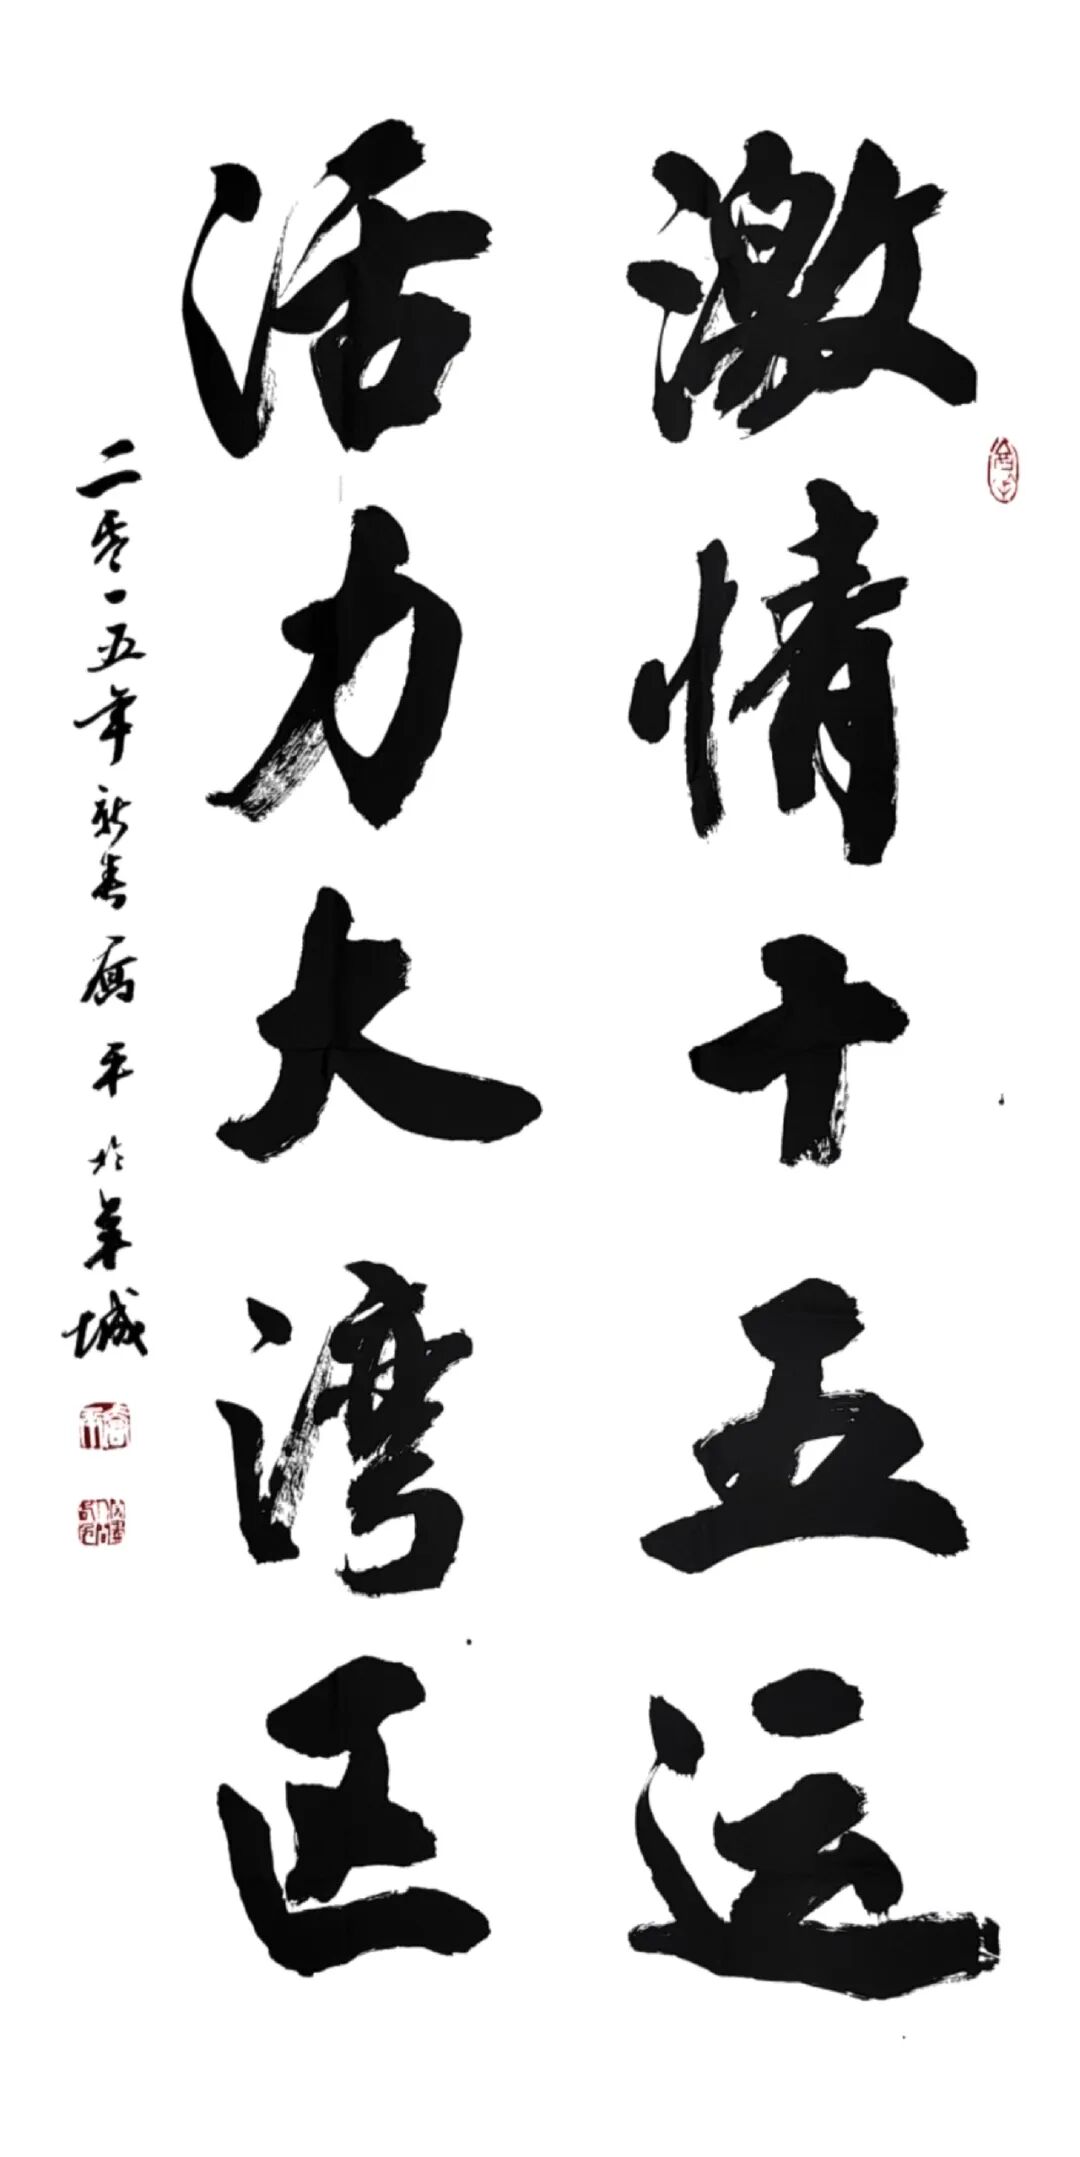 激情十五运
活力大湾区
二零一五年新春平於羊城